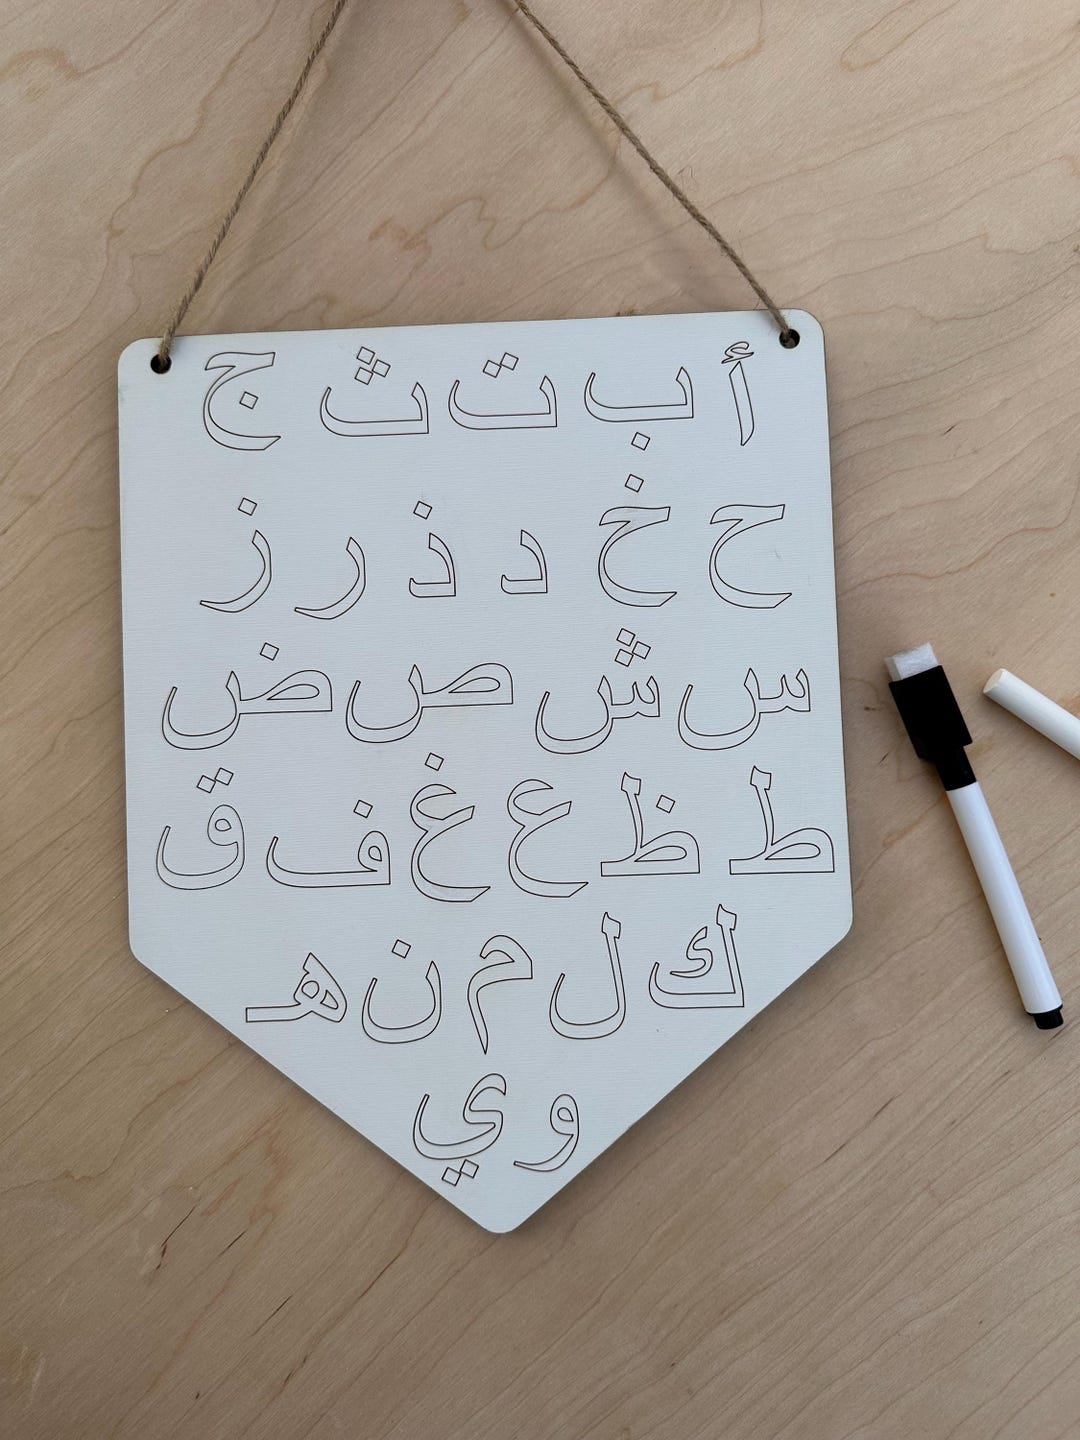 أ ب ت ث ج
ح خ د ذ ر ز
س ش ص ض
ط ظ ع غ ف ق
ك ل م ن هـ
و ي